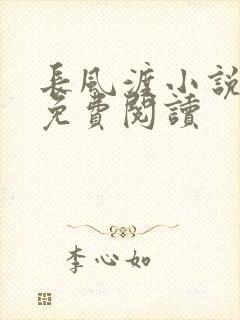 長風渡小說
免費閱讀
李心如